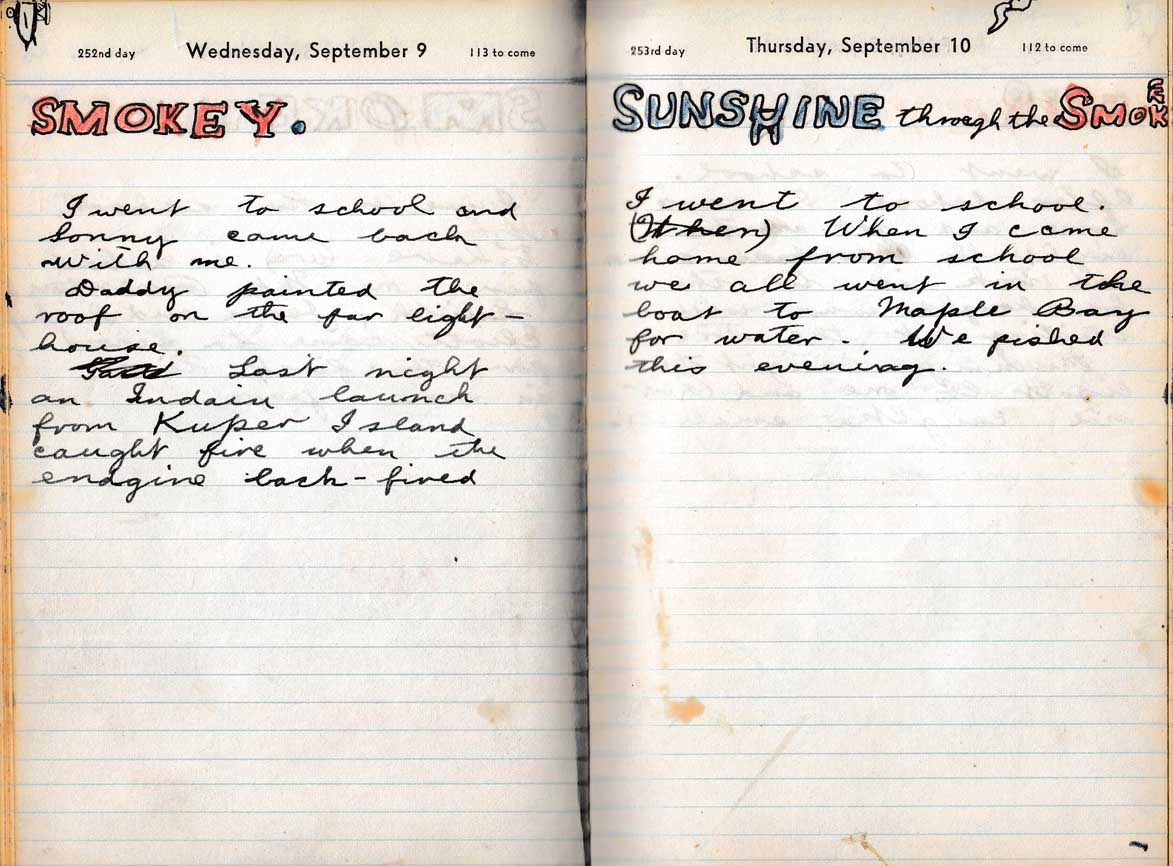 252nd day Wednesday, September 9 113 to come
SMOKEY.
I went to school and
Sonny came back
with me.
Daddy painted the
roof on the far light-
house.
Last night
an Indain launch
from Kuper Island
caught fire when the
endgine back-fired
253rd day Thursday, September 10 112 to come
SUNSHINE through the SMOKE
I went to school.
(Then) When I came
home from school
we all went in the
boat to Maple Bay
for water. We fished
this evening.